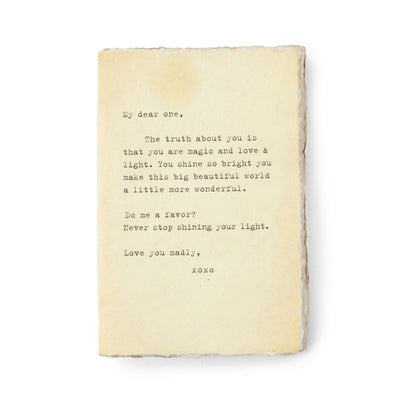 My dear one,
The truth about you is
that you are magic and love &
light. You shine so bright you
make this big beautiful world
a little more wonderful.
Do me a favor?
Never stop shining your light.
Love you madly,
xoxo